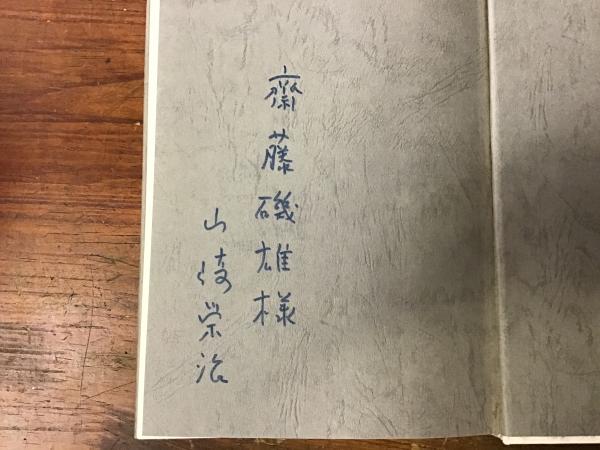 齋藤磯雄様
山崎榮治